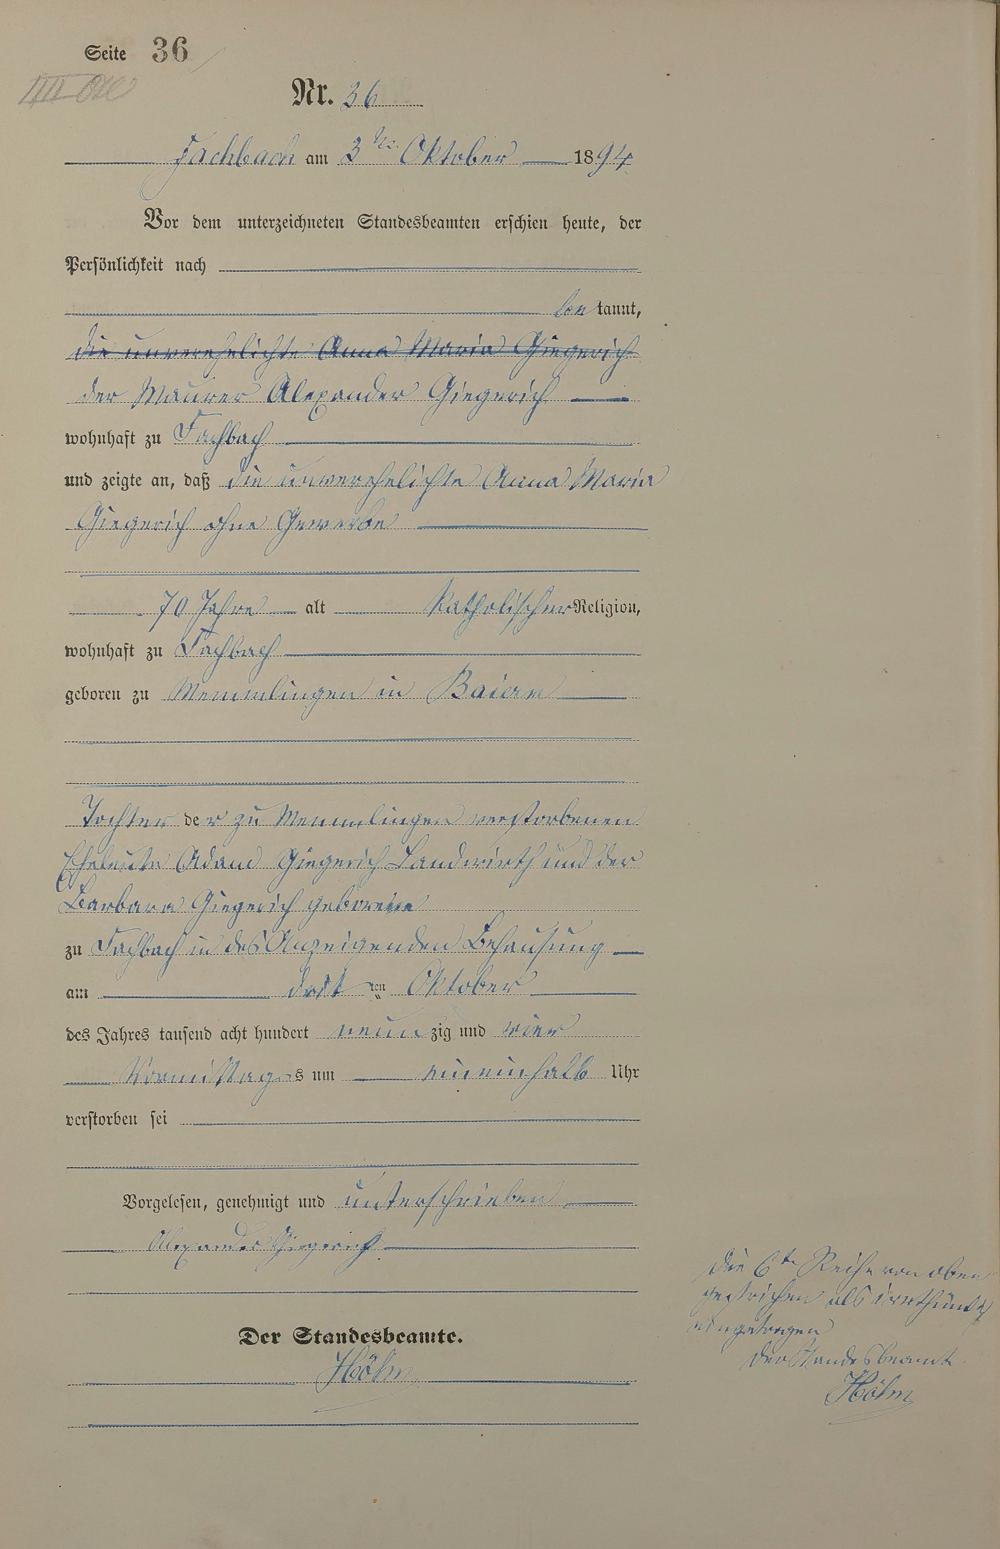 Seite 36
Nr. 36
Fachbach am 3ten Oktober 1894
Vor dem unterzeichneten Standesbeamten erschien heute, der
Persönlichkeit nach
be kannt,
die unverehelichte Anna Maria Giegerich
der Maurer Alexander Giegerich
wohnhaft zu Fachbach
und zeigte an, daß die unverehelichte Anna Maria
Giegerich ohne Gewerbe
70 Jahre alt katholischer Religion,
wohnhaft zu Fachbach
geboren zu Memmlingen in Baiern
Tochter der zu Memmlingen verstorbenen
Eheleute Adam Giegerich Landwirth und der
Barbara Giegerich geborene
zu Fachbach in des Anzeigenden Behausung
am dritten Oktober
des Jahres tausend acht hundert neun zig und vier
Vormittags um Uhr
verstorben sei
Vorgelesen, genehmigt und unterschrieben
Alexander Giegerich
Der Standesbeamte.
Höhn
die 6te Reihe von oben
gestrichen als irrthümlich
eingetragen
Der Standesbeamte
Höhn